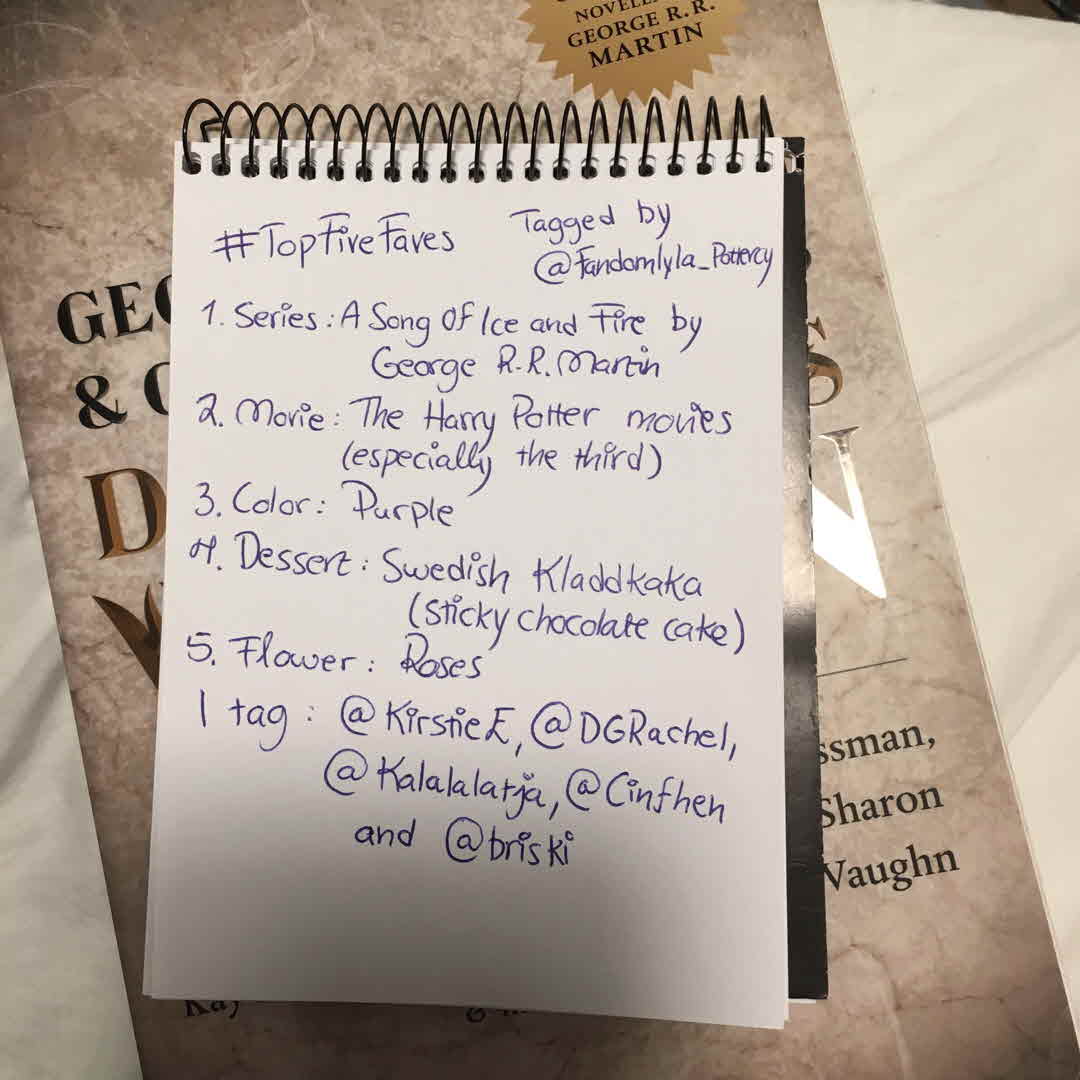 NOVELL
GEORGE R. R.
MARTIN
#TopFiveFaves
Tagged by
@Fandomlyla_Pottercy
1. Series: A Song Of Ice and Fire by
George R.R. Martin
2. Movie: The Harry Potter movies
(especially the third)
3. Color: Purple
4. Dessert: Swedish Kladdkaka
(sticky chocolate cake)
5. Flower: Roses
I tag: @KirstieE, @DGRachel,
@Kalalalatja, @Cinfhen
and @briski
GEO
& 
D
N
ssman,
Sharon
Vaughn